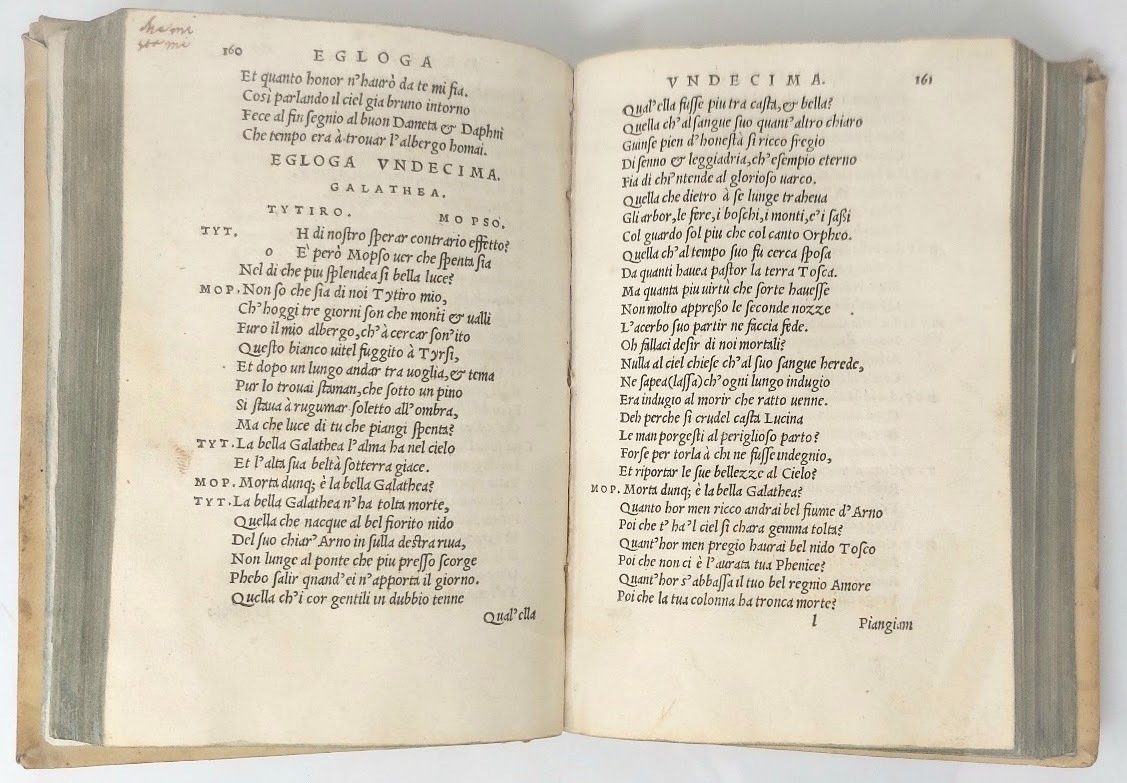 160
EGLOGA
Et quanto honor n'haurò da te mi fia.
Così parlando il ciel gia bruno intorno
Fece al fin segnio al buon Dameta & Daphni
Che tempo era à trouar l'albergo homai.
EGLOGA VNDECIMA.
GALATHEA.
TYTIRO. MOPSO.
TYT. H di nostro sperar contrario effetto?
o E' però Mopso uer che spenta sia
Nel di che piu splendea si bella luce?
MOP. Non so che sia di noi Tytiro mio,
Ch'hoggi tre giorni son che monti & ualli
Furo il mio albergo, ch'à cercar son'ito
Questo bianco uitel fuggito à Tyrsi,
Et dopo un lungo andar tra uoglia, & tema
Pur lo trouai staman, che sotto un pino
Si staua à rugumar soletto all'ombra,
Ma che luce di tu che piangi spenta?
TYT. La bella Galathea l'alma ha nel cielo
Et l'alta sua beltà sotterra giace.
MOP. Morta dunq; è la bella Galathea?
TYT. La bella Galathea n'ha tolta morte,
Quella che nacque al bel fiorito nido
Del suo chiar'Arno in sulla destra riua,
Non lunge al ponte che piu presso scorge
Phebo salir qnand'ei n'apporta il giorno.
Quella ch'i cor gentili in dubbio tenne
Qual'ella
VNDECIMA. 161
Qual'ella fusse piu tra casta, & bella?
Quella ch'al sangue suo quant'altro chiaro
Giunse pien d'honestà si ricco fregio
Di senno & leggiadria, ch'esempio eterno
Fia di chi'ntende al glorioso uarco.
Quella che dietro à se lunge traheua
Gli arbor, le fere, i boschi, i monti, e'i saßi
Col guardo sol piu che col canto Orpheo.
Quella ch'al tempo suo fu cerca sposa
Da quanti hauea pastor la terra Tosca.
Ma quanta piu uirtù che sorte hauesse
Non molto appreßo le seconde nozze
L'acerbo suo partir ne faccia fede.
Oh fallaci desir di noi mortali?
Nulla al ciel chiese ch'al suo sangue herede,
Ne sapea (lassa) ch'ogni lungo indugio
Era indugio al morir che ratto uenne.
Deh perche si crudel casta Lucina
Le man porgesti al periglioso parto?
Forse per torla à chi ne fusse indegnio,
Et riportar le sue bellezze al Cielo?
MOP. Morta dunq; è la bella Galathea?
Quanto hor men ricco andrai bel fiume d'Arno
Poi che t'ha'l ciel si chara gemma tolta?
Quant'hor men pregio haurai bel nido Tosco
Poi che non ci è l'aurata tua Phenice?
Quant'hor s'abbassa il tuo bel regnio Amore
Poi che la tua colonna ha tronca morte?
l Piangiam